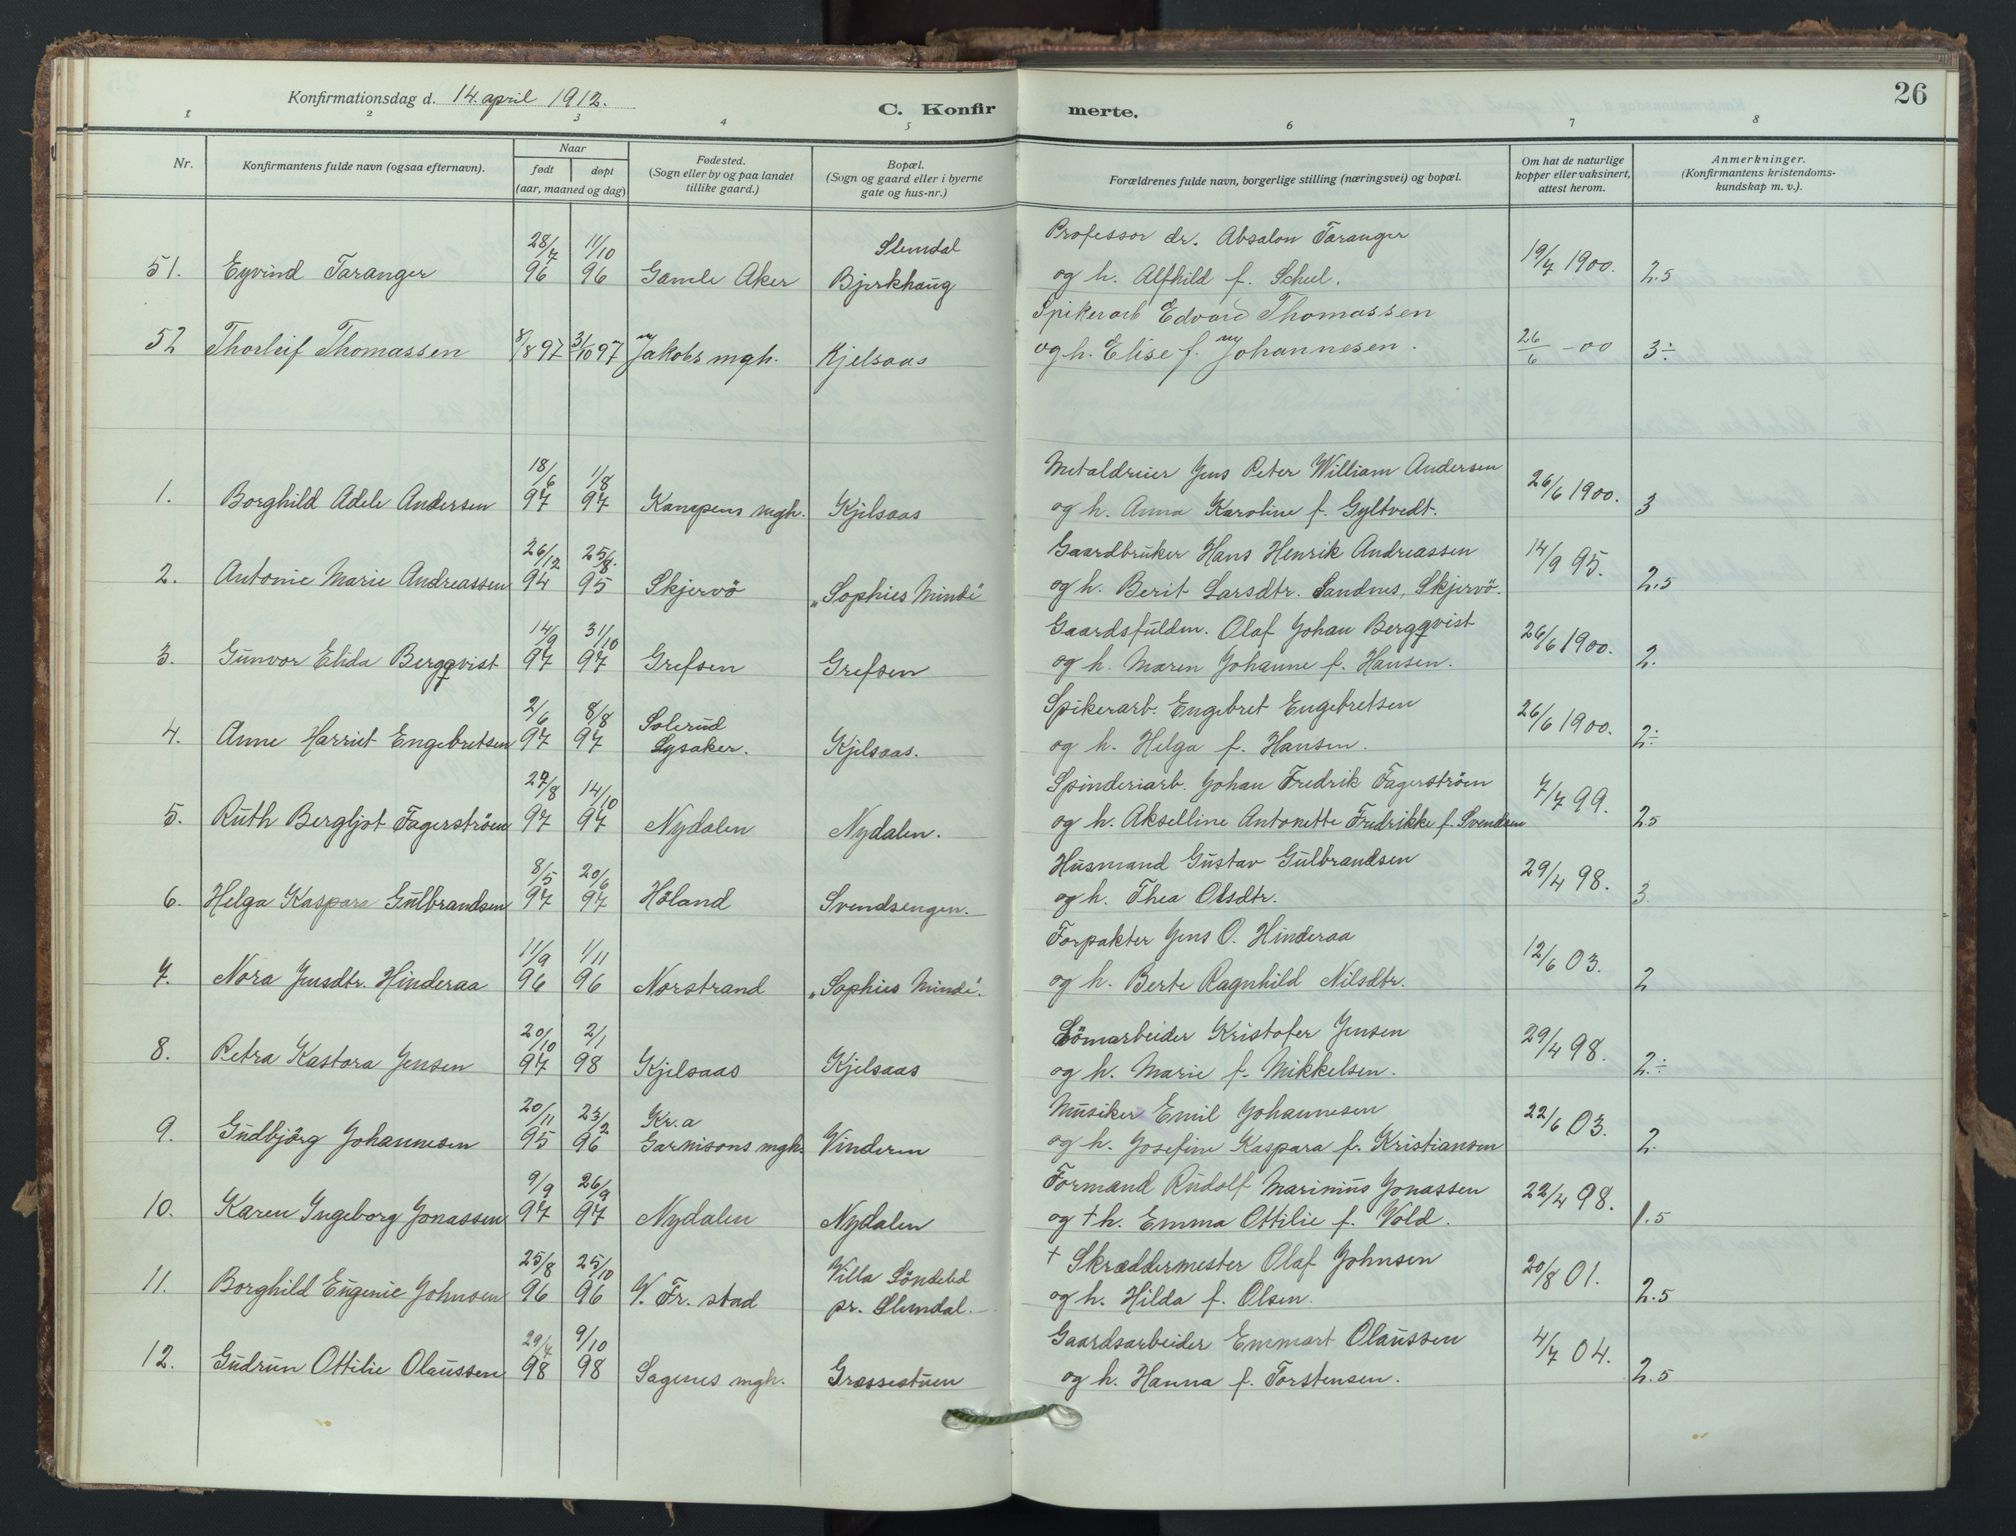 26
Konfirmationsdag d. 14. april 1912.
C. Konfirmerte.
1 2 3 4 5 6 7 8
Nr.
Konfirmantens fulde navn (ogsaa efternavn).
Naar
født døpt
(aar, maaned og dag)
Fødested.
(Sogn eller by og paa landet
tillike gaard.)
Bopæl.
(Sogn og gaard eller i byerne
gate og hus-nr.)
Forældrenes fulde navn, borgerlige stilling (næringsvei) og bopæl.
Om hat de naturlige
kopper eller vaksinert,
attest herom.
Anmerkninger.
(Konfirmantens kristendoms-
kundskap m. v.).
28/7 11/10 Slemdal Professor dr. Absalon Taranger
51. Eyvind Taranger 96 96 Gamle Aker Bjerkhaug og h. Alfhild f. Scheel. 19/7 1900. 2.5
Spikerarb Edvard Thomassen
52 Thorleif Thomassen 8/8 97 3/10 97 Jakobs mgh. Kjelsaas og h. Elise f. Johannesen. 26/6 -00 3÷
18/6 1/8 Metaldreier Jens Peter William Andersen
1. Borghild Adele Andersen 97 97 Kampens mgh. Kjelsaas og h. Anna Karoline f. Gyltvedt. 26/6 1900. 3
26/12 25/8. Gaardbruker Hans Henrik Andreassen
2. Antonie Marie Andreassen 94 95 Skjervö „Sophies Minde" og h. Berit Larsdtr. Sandnes, Skjervö. 14/9 95. 2.5
14/9 31/10 Gaardsfuldm. Olaf Johan Bergqvist
3. Gunvor Elida Bergqvist 97 97 Grefsen Grefsen og h. Maren Johanne f. Hansen. 26/6 1900. 2.
2/6 8/8 Solerud Spikerarb. Engebret Engebretsen
4. Anne Harriet Engebretsen 97 97 Lysaker. Kjelsaas. og h. Helga f. Hansen. 26/6 1900. 2÷
27/8 14/10 Spinderiarb. Johan Fredrik Fagerström
5. Ruth Bergljot Fagerström 97 97 Nydalen Nydalen. og h. Akselline Antonette Fredrikke f. Svendsen 7/7 99. 2.5
8/5 20/6 Husmand Gustav Gulbrandsen
6. Helga Kaspara Gulbrandsen 97 97 Höland Svendsengen. og h. Thea Olsdtr. 29/4 98. 3.
11/9 1/11 Forpakter Jens O. Hinderaa
7. Nora Jensdtr. Hinderaa 96 96 Norstrand „Sophies Minde". og h. Berte Ragnhild Nilsdtr. 12/6 03. 2
20/10 2/1 Sömarbeider Kristofer Jensen
8. Petra Kastora Jensen 97 98 Kjelsaas Kjelsaas og h. Marie f. Mikkelsen. 29/4 98. 2.÷
20/11 23/2 Kr.a Musiker Emil Johannesen
9. Gudbjörg Johannesen 95 96 Garnisons mgh. Vinderen og h. Josefine Kaspara f. Kristiansen 22/6 03. 2.
9/9 26/9 Formand Rudolf Marinius Jonassen
10. Karen Ingeborg Jonassen 97 97 Nydalen Nydalen og + h. Emma Ottilie f. Vold. 22/4 98. 1.5
25/8 25/10 Villa Söndeled + Skræddermester Olaf Johnsen
11. Borghild Eugenie Johnsen 96 96 V. Fr. stad pr. Slemdal. og h. Hilda f. Olsen. 20/8 01. 2.5
29/7 9/10 Gaardsarbeider Emmart Olaussen
12. Gudrun Ottilie Olaussen 98 98 Sagenes mgh. Græssestuen og h. Hanna f. Torstensen. 4/7 04. 2.5